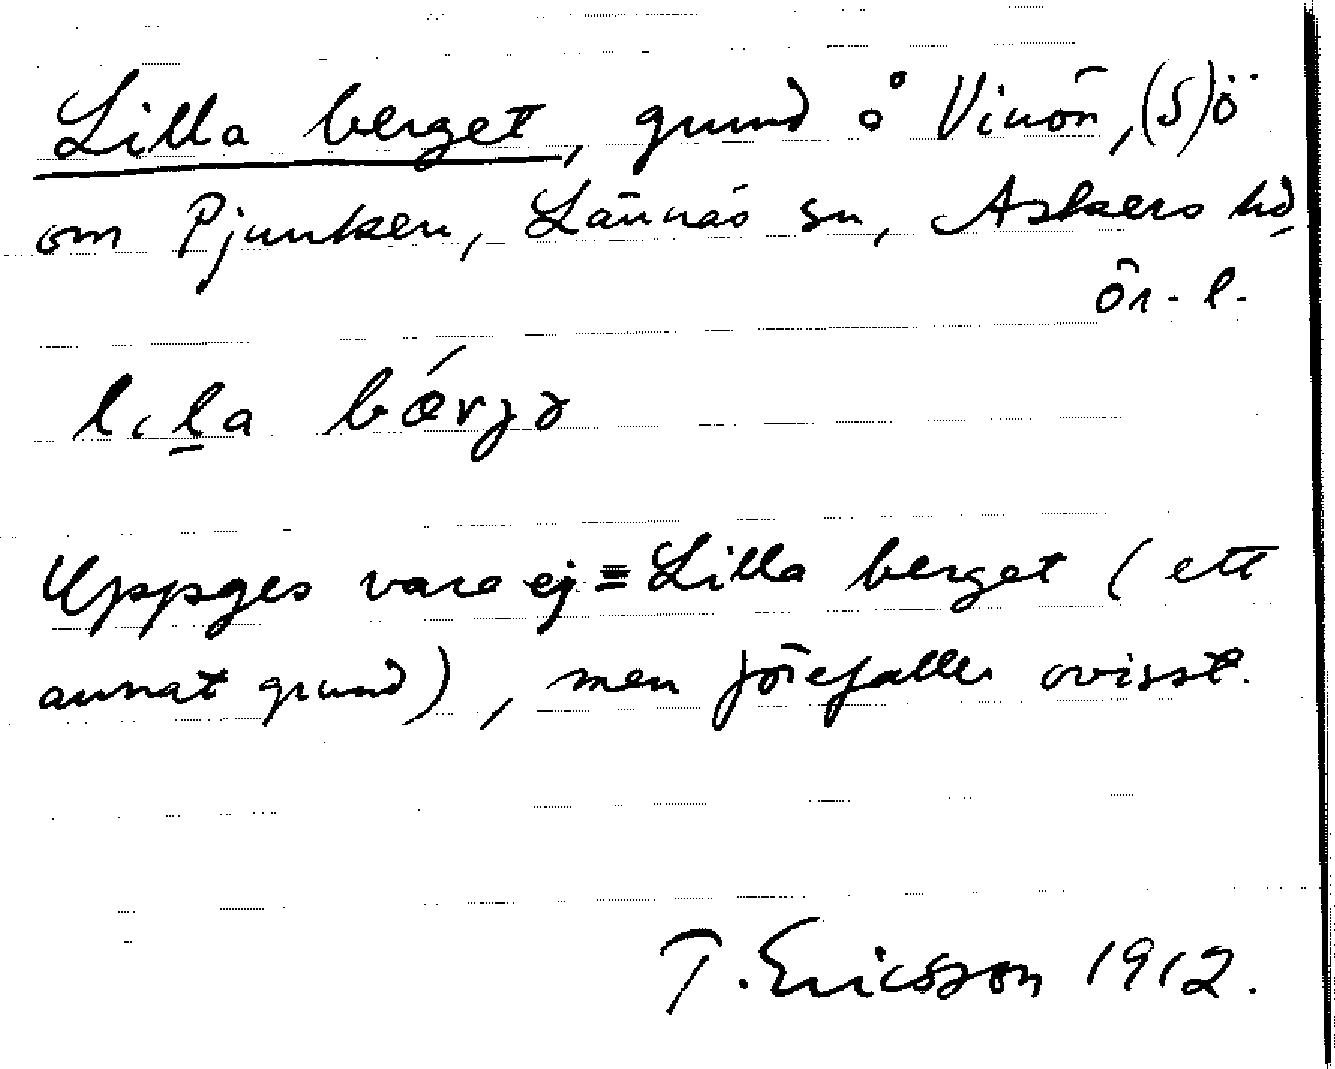 Lilla berget, grund å Vinön, (S)ö
om Pjunken, Lännäs sn, Askers hd,
Ör. l.
lila bǽrjə
Uppges vara ej = Lilla berget (ett
annat grund), men förefaller ovisst.
T. Ericsson 1912.